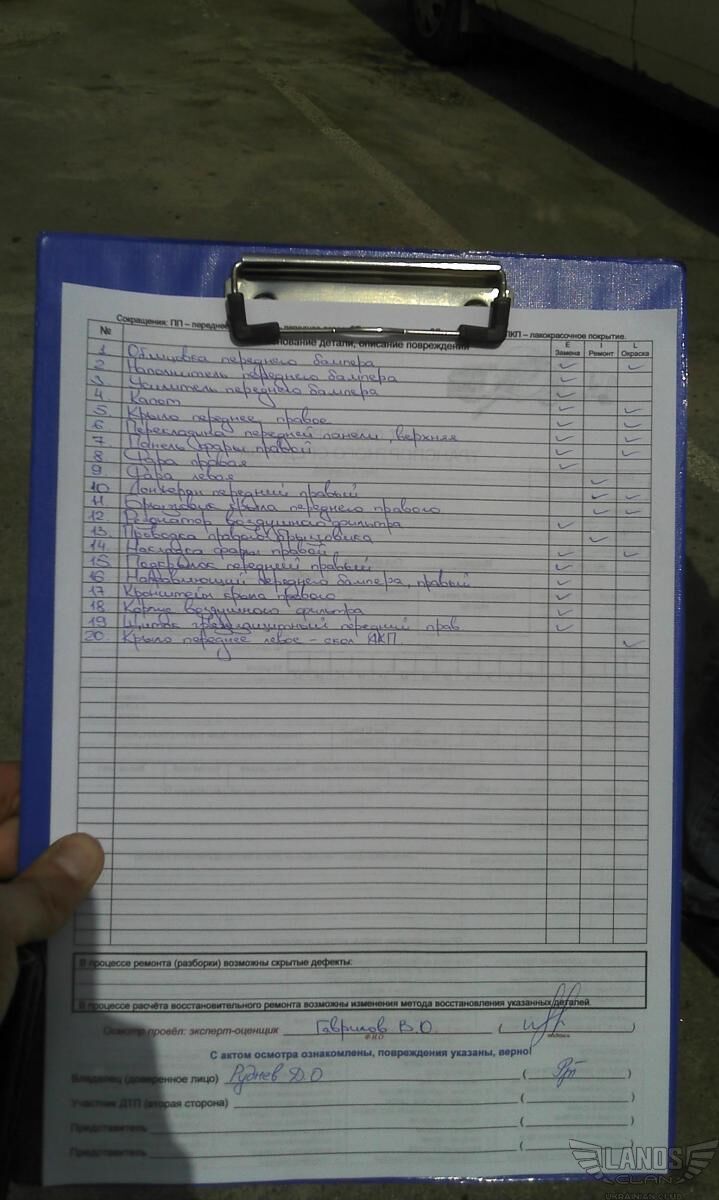 Сокращения: ПП – переднее ЛКП – лакокрасочное покрытие.
№ нование детали, описание повреждений E I L
Замена Ремонт Окраска
1 Облицовка переднего бампера ✓ ✓
2 Наполнитель переднего бампера ✓
3 Усилитель переднего бампера ✓
4 Капот ✓ ✓
5 Крыло переднее правое ✓ ✓
6 Перекладина передней панели, верхняя ✓ ✓
7 Панель фары правой ✓ ✓
8 Фара правая ✓
9 Фара левая ✓
10 Лонжерон передний правый ✓ ✓
11 Брызговик крыла переднего правого ✓ ✓
12. Резонатор воздушного фильтра ✓
13. Проводка правого брызговика ✓
14. Накладка фары правой ✓ ✓
15. Подкрылок передний правый ✓
16 Направляющий переднего бампера, правый ✓
17 Кронштейн крыла правого ✓
18 Корпус воздушного фильтра ✓
19 Щиток грязезащитный передний прав ✓
20. Крыло переднее левое – скол ЛКП. ✓
В процессе ремонта (разборки) возможны скрытые дефекты:
В процессе расчёта восстановительного ремонта возможны изменения метода восстановления указанных деталей.
Осмотр провёл: эксперт-оценщик Гаврилов В.О. ( )
Ф.И.О подпись
С актом осмотра ознакомлены, повреждения указаны, верно!
Владелец (доверенное лицо) Руднев Д.О ( )
Участник ДТП (вторая сторона) ( )
Представитель ( )
Представитель ( )
LANOS
CLAN
UKRAINIAN CLUB